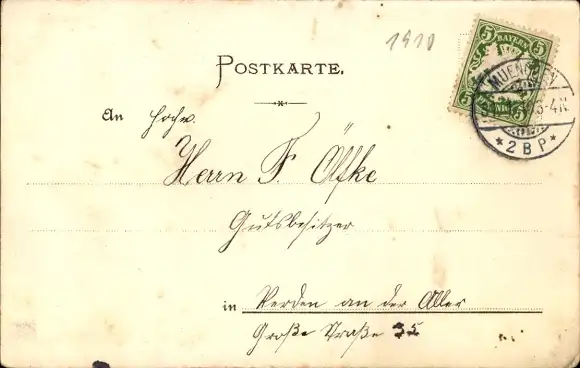 1910
POSTKARTE.
5 BAYERN 5
PFENNIG
MUENCHEN
3-4N.
* 2 B.P. *
An Hochw.
Herrn F. Ölfke
Gutsbesitzer
in Verden an der Aller
Große Straße 35